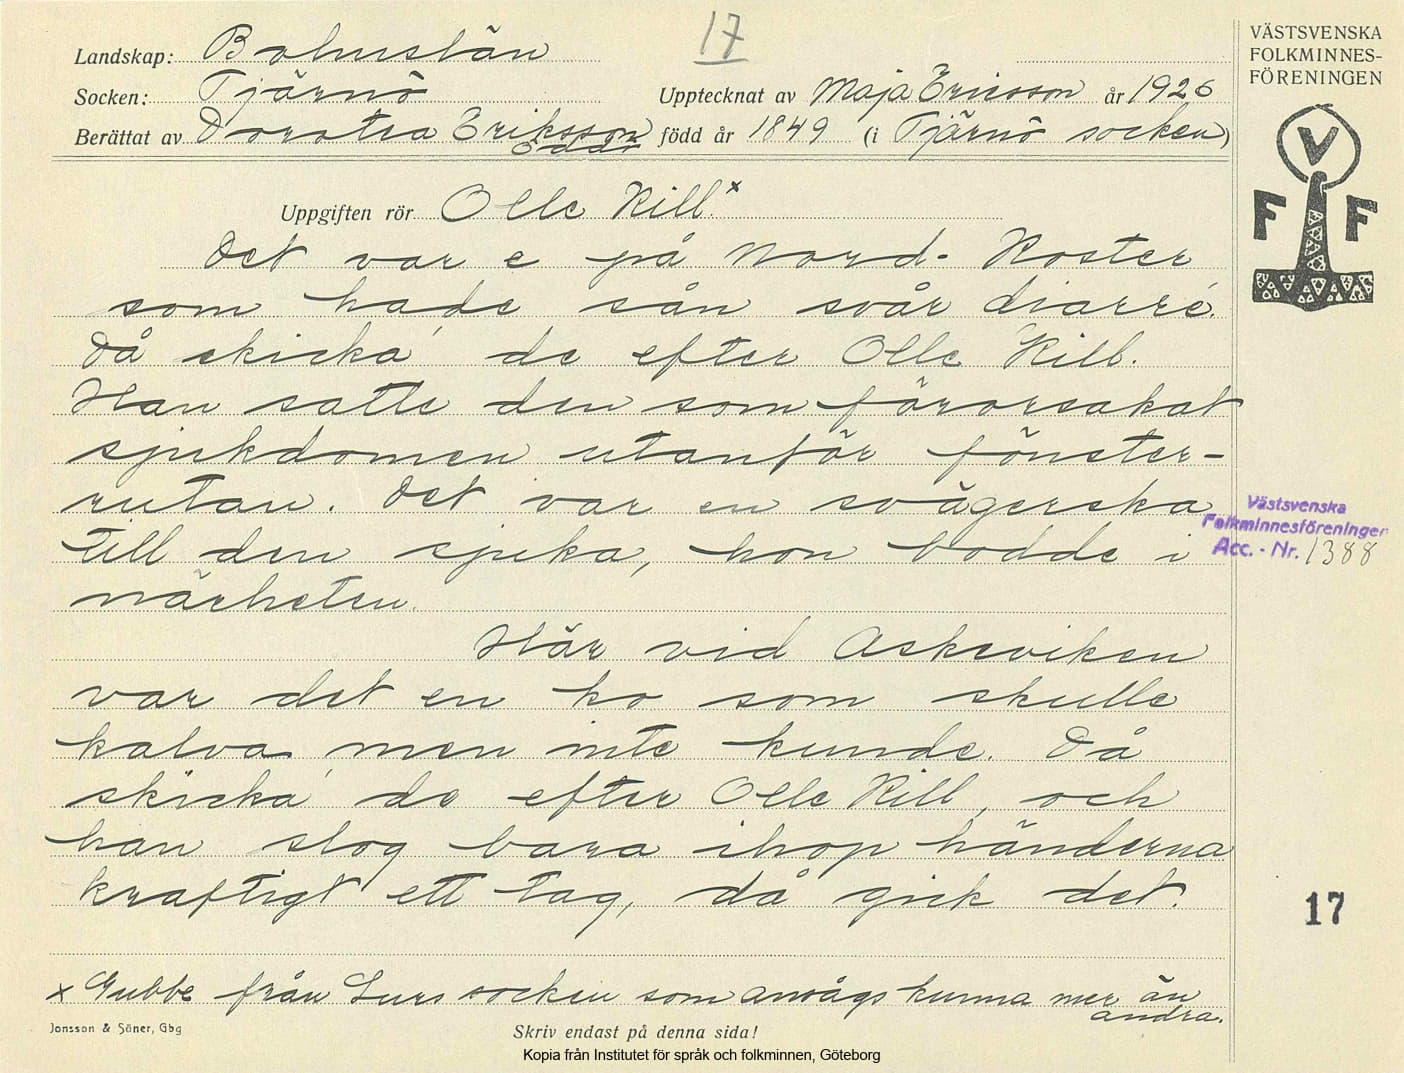 17
VÄSTSVENSKA
FOLKMINNES-
FÖRENINGEN
Landskap: Bohuslän
Socken: Tjärnö
Upptecknat av Maja Ericsson år 1926
Berättat av Dorotea Eriksson född år 1849 (i Tjärnö socken)
V
F F
Uppgiften rör Olle Kill.x
Det var e på Nord-Koster
som hade sån svår diarré.
Då skicka' de efter Olle Kill.
Han satte den som förorsakat
sjukdomen utanför fönster-
rutan. Det var en svägerska
till den sjuka, hon bodde i
närheten.
Västsvenska
Folkminnesföreningen
Acc. - Nr. 1388
Här vid Askeviken
var det en ko som skulle
kalva, men inte kunde. Då
skicka' de efter Olle Kill, och
han slog bara ihop händerna
kraftigt ett tag, då gick det.
17
x Gubbe från Lurs socken som ansågs kunna mer än
andra.
Jonsson & Söner, Gbg
Skriv endast på denna sida!
Kopia från Institutet för språk och folkminnen, Göteborg